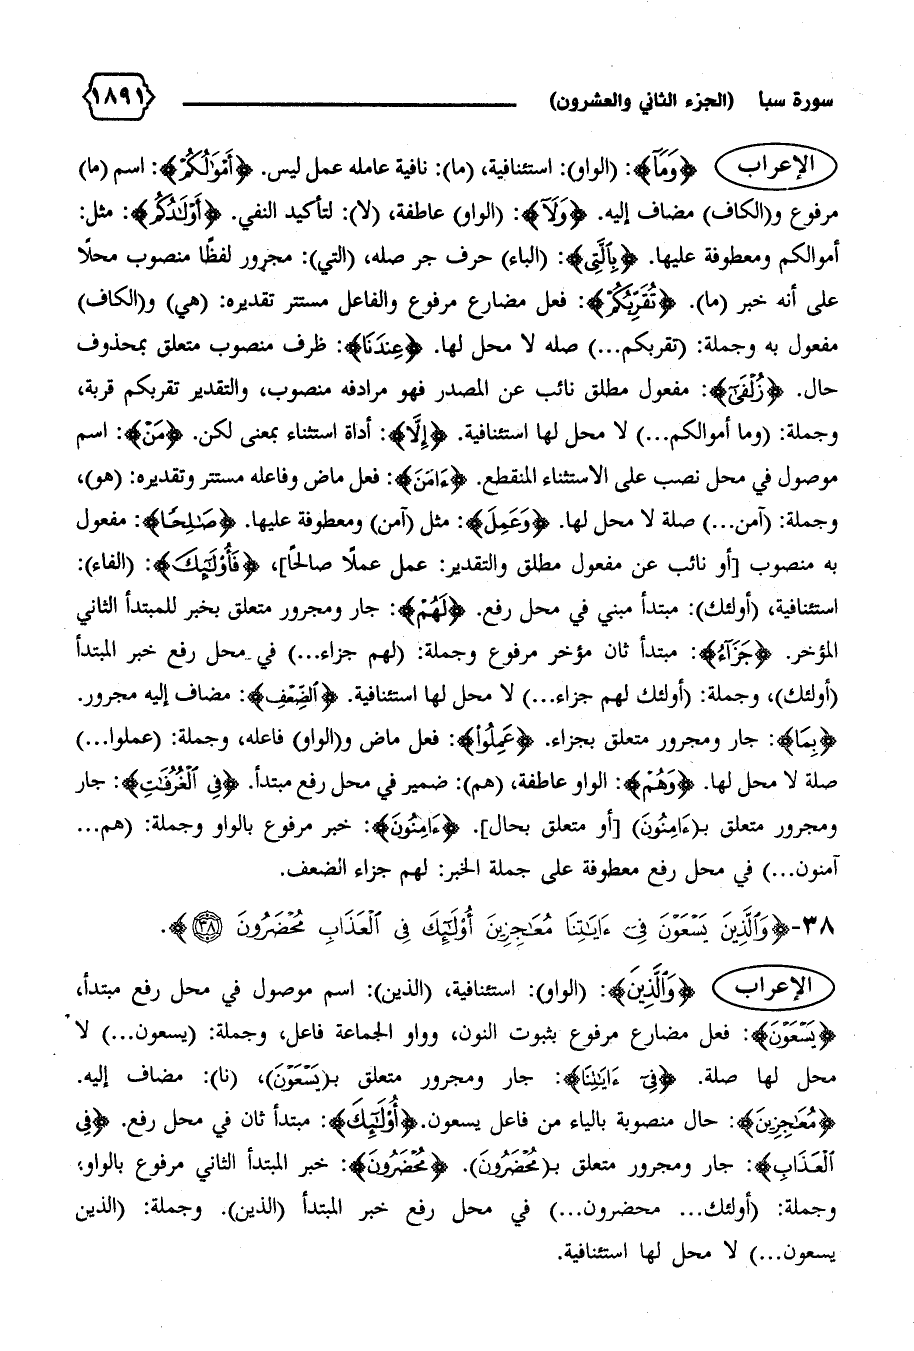 سورة سبا (الجزء الثاني والعشرون) ١٨٩١
الإعراب ﴿وَمَآ﴾: (الواو): استئنافية، (ما): نافية عامله عمل ليس. ﴿أَمْوَٰلُكُمْ﴾: اسم (ما)
مرفوع و(الكاف) مضاف إليه. ﴿وَلَآ﴾: (الواو) عاطفة، (لا): لتأكيد النفي. ﴿أَوْلَٰدُكُم﴾: مثل:
أموالكم ومعطوفة عليها. ﴿بِٱلَّتِي﴾: (الباء) حرف جر صله، (التي): مجرور لفظًا منصوب محلًا
على أنه خبر (ما). ﴿تُقَرِّبُكُمْ﴾: فعل مضارع مرفوع والفاعل مستتر تقديره: (هي) و(الكاف)
مفعول به وجملة: (تقربكم...) صله لا محل لها. ﴿عِندَنَا﴾: ظرف منصوب متعلق بمحذوف
حال. ﴿زُلْفَىٰٓ﴾: مفعول مطلق نائب عن المصدر فهو مرادفه منصوب، والتقدير تقربكم قربة،
وجملة: (وما أموالكم...) لا محل لها استئنافية. ﴿إِلَّا﴾: أداة استثناء بمعنى لكن. ﴿مَنْ﴾: اسم
موصول في محل نصب على الاستثناء المنقطع. ﴿ءَامَنَ﴾: فعل ماض وفاعله مستتر وتقديره: (هو)،
وجملة: (آمن...) صلة لا محل لها. ﴿وَعَمِلَ﴾: مثل (آمن) ومعطوفة عليها. ﴿صَٰلِحًا﴾: مفعول
به منصوب [أو نائب عن مفعول مطلق والتقدير: عمل عملًا صالحًا]، ﴿فَأُو۟لَٰٓئِكَ﴾: (الفاء):
استئنافية، (أولئك): مبتدأ مبني في محل رفع. ﴿لَهُمْ﴾: جار ومجرور متعلق بخبر للمبتدأ الثاني
المؤخر. ﴿جَزَآءُ﴾: مبتدأ ثان مؤخر مرفوع وجملة: (لهم جزاء...) في محل رفع خبر المبتدأ
(أولئك)، وجملة: (أولئك لهم جزاء...) لا محل لها استئنافية. ﴿ٱلضِّعْفِ﴾: مضاف إليه مجرور.
﴿بِمَا﴾: جار ومجرور متعلق بجزاء. ﴿عَمِلُوا۟﴾: فعل ماض و(الواو) فاعله، وجملة: (عملوا...)
صلة لا محل لها. ﴿وَهُمْ﴾: الواو عاطفة، (هم): ضمير في محل رفع مبتدأ. ﴿فِى ٱلْغُرُفَٰتِ﴾: جار
ومجرور متعلق بـ(ءَامِنُونَ) [أو متعلق بحال]. ﴿ءَامِنُونَ﴾: خبر مرفوع بالواو وجملة: (هم...
آمنون...) في محل رفع معطوفة على جملة الخبر: لهم جزاء الضعف.
٣٨-﴿وَٱلَّذِينَ يَسْعَوْنَ فِىٓ ءَايَٰتِنَا مُعَٰجِزِينَ أُو۟لَٰٓئِكَ فِى ٱلْعَذَابِ مُحْضَرُونَ ٣٨﴾.
الإعراب ﴿وَٱلَّذِينَ﴾: (الواو): استئنافية، (الذين): اسم موصول في محل رفع مبتدأ،
﴿يَسْعَوْنَ﴾: فعل مضارع مرفوع بثبوت النون، وواو الجماعة فاعل، وجملة: (يسعون...) لا
محل لها صلة. ﴿فِىٓ ءَايَٰتِنَا﴾: جار ومجرور متعلق بـ(يَسْعَوْنَ)، (نا): مضاف إليه.
﴿مُعَٰجِزِينَ﴾: حال منصوبة بالياء من فاعل يسعون. ﴿أُو۟لَٰٓئِكَ﴾: مبتدأ ثان في محل رفع. ﴿فِى
ٱلْعَذَابِ﴾: جار ومجرور متعلق بـ(مُحْضَرُونَ). ﴿مُحْضَرُونَ﴾: خبر المبتدأ الثاني مرفوع بالواو،
وجملة: (أولئك... محضرون...) في محل رفع خبر المبتدأ (الذين). وجملة: (الذين
يسعون...) لا محل لها استئنافية.